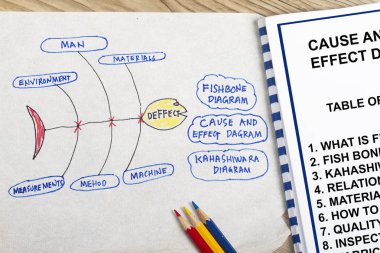 MAN
MATERIALS
ENVIRONMENT
DEFFECT
MEASUREMENTS
MEHOD
MACHINE
FISHBONE
DIAGRAM
CAUSE AND
EFFECT DAGRAM
KAHASHIWARA
DIAGRAM
CAUSE AN
EFFECT D
TABLE OF
1. WHAT IS F
2. FISH BON
3. KAHASHI
4. RELATION
5. MATERIA
6. HOW TO
7. QUALITY
8. INSPECT